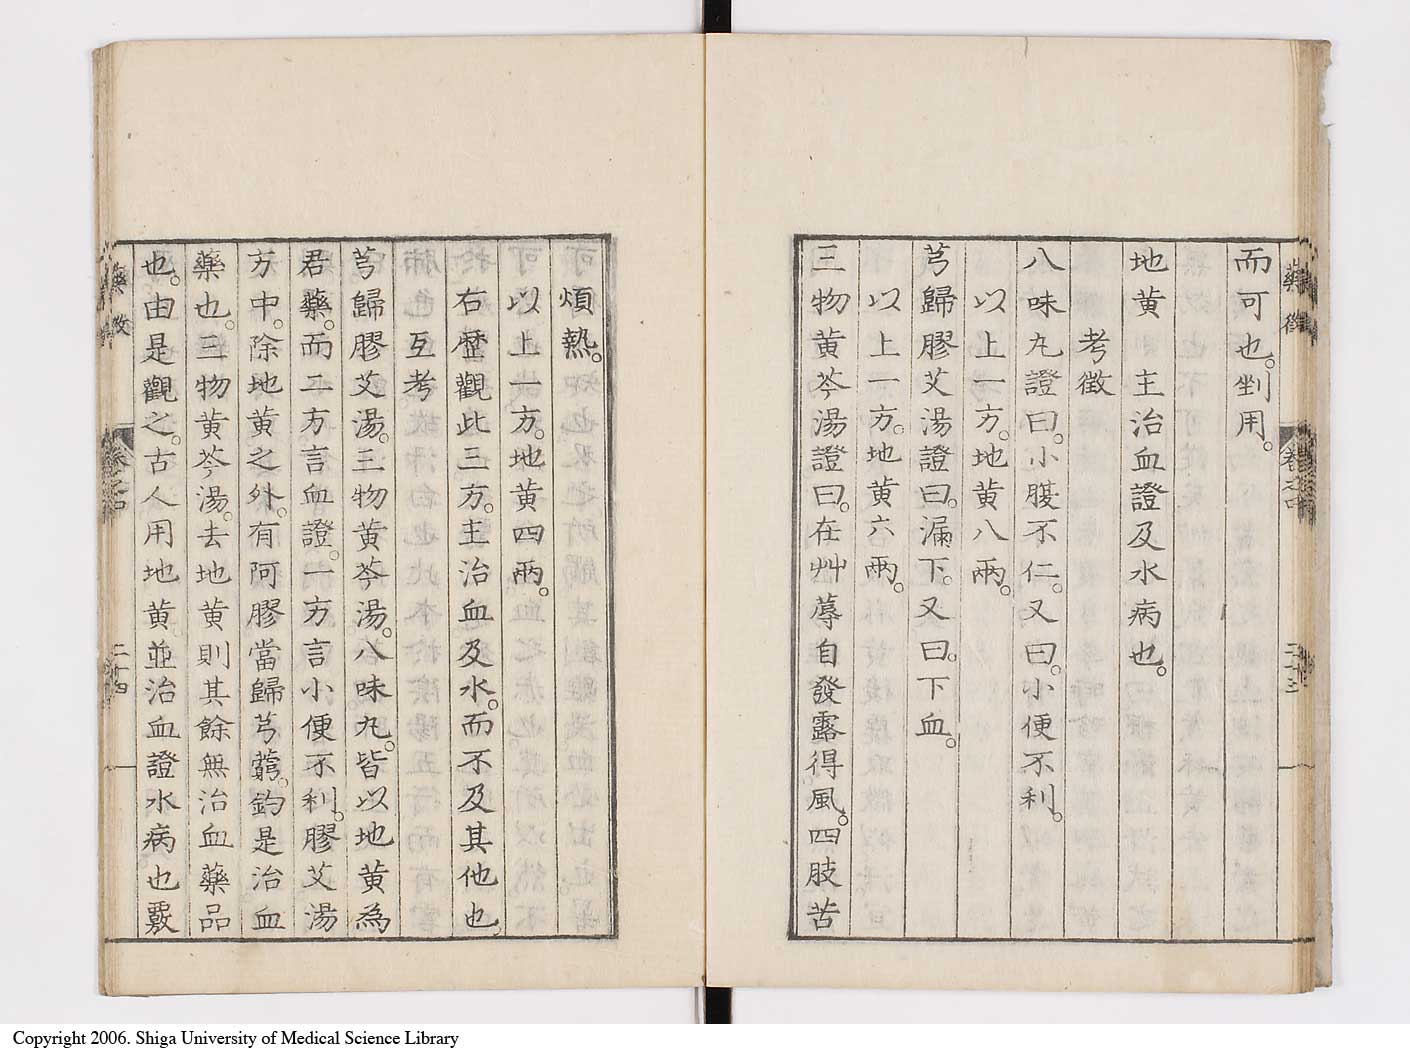 而可也。剉用。
地黄 主治血證及水病也。
考徴
八味丸證曰。小腹不仁。又曰。小便不利。
以上一方。地黄八兩。
芎歸膠艾湯證曰。漏下。又曰。下血。
以上一方。地黄六兩。
三物黄芩湯證曰。在艸蓐自發露得風。四肢苦
藥徴
卷之四
二十三
煩熱。
以上一方。地黄四兩。
右歴觀此三方。主治血及水。而不及其他也。
互考
芎歸膠艾湯。三物黄芩湯。八味丸。皆以地黄為
君藥。而二方言血證。一方言小便不利。膠艾湯
方中。除地黄之外。有阿膠當歸芎藭。鈞是治血
藥也。三物黄芩湯。去地黄則其餘無治血藥品
也。由是觀之。古人用地黄。並治血證水病也覈
藥徴
卷之四
二十四
Copyright 2006. Shiga University of Medical Science Library